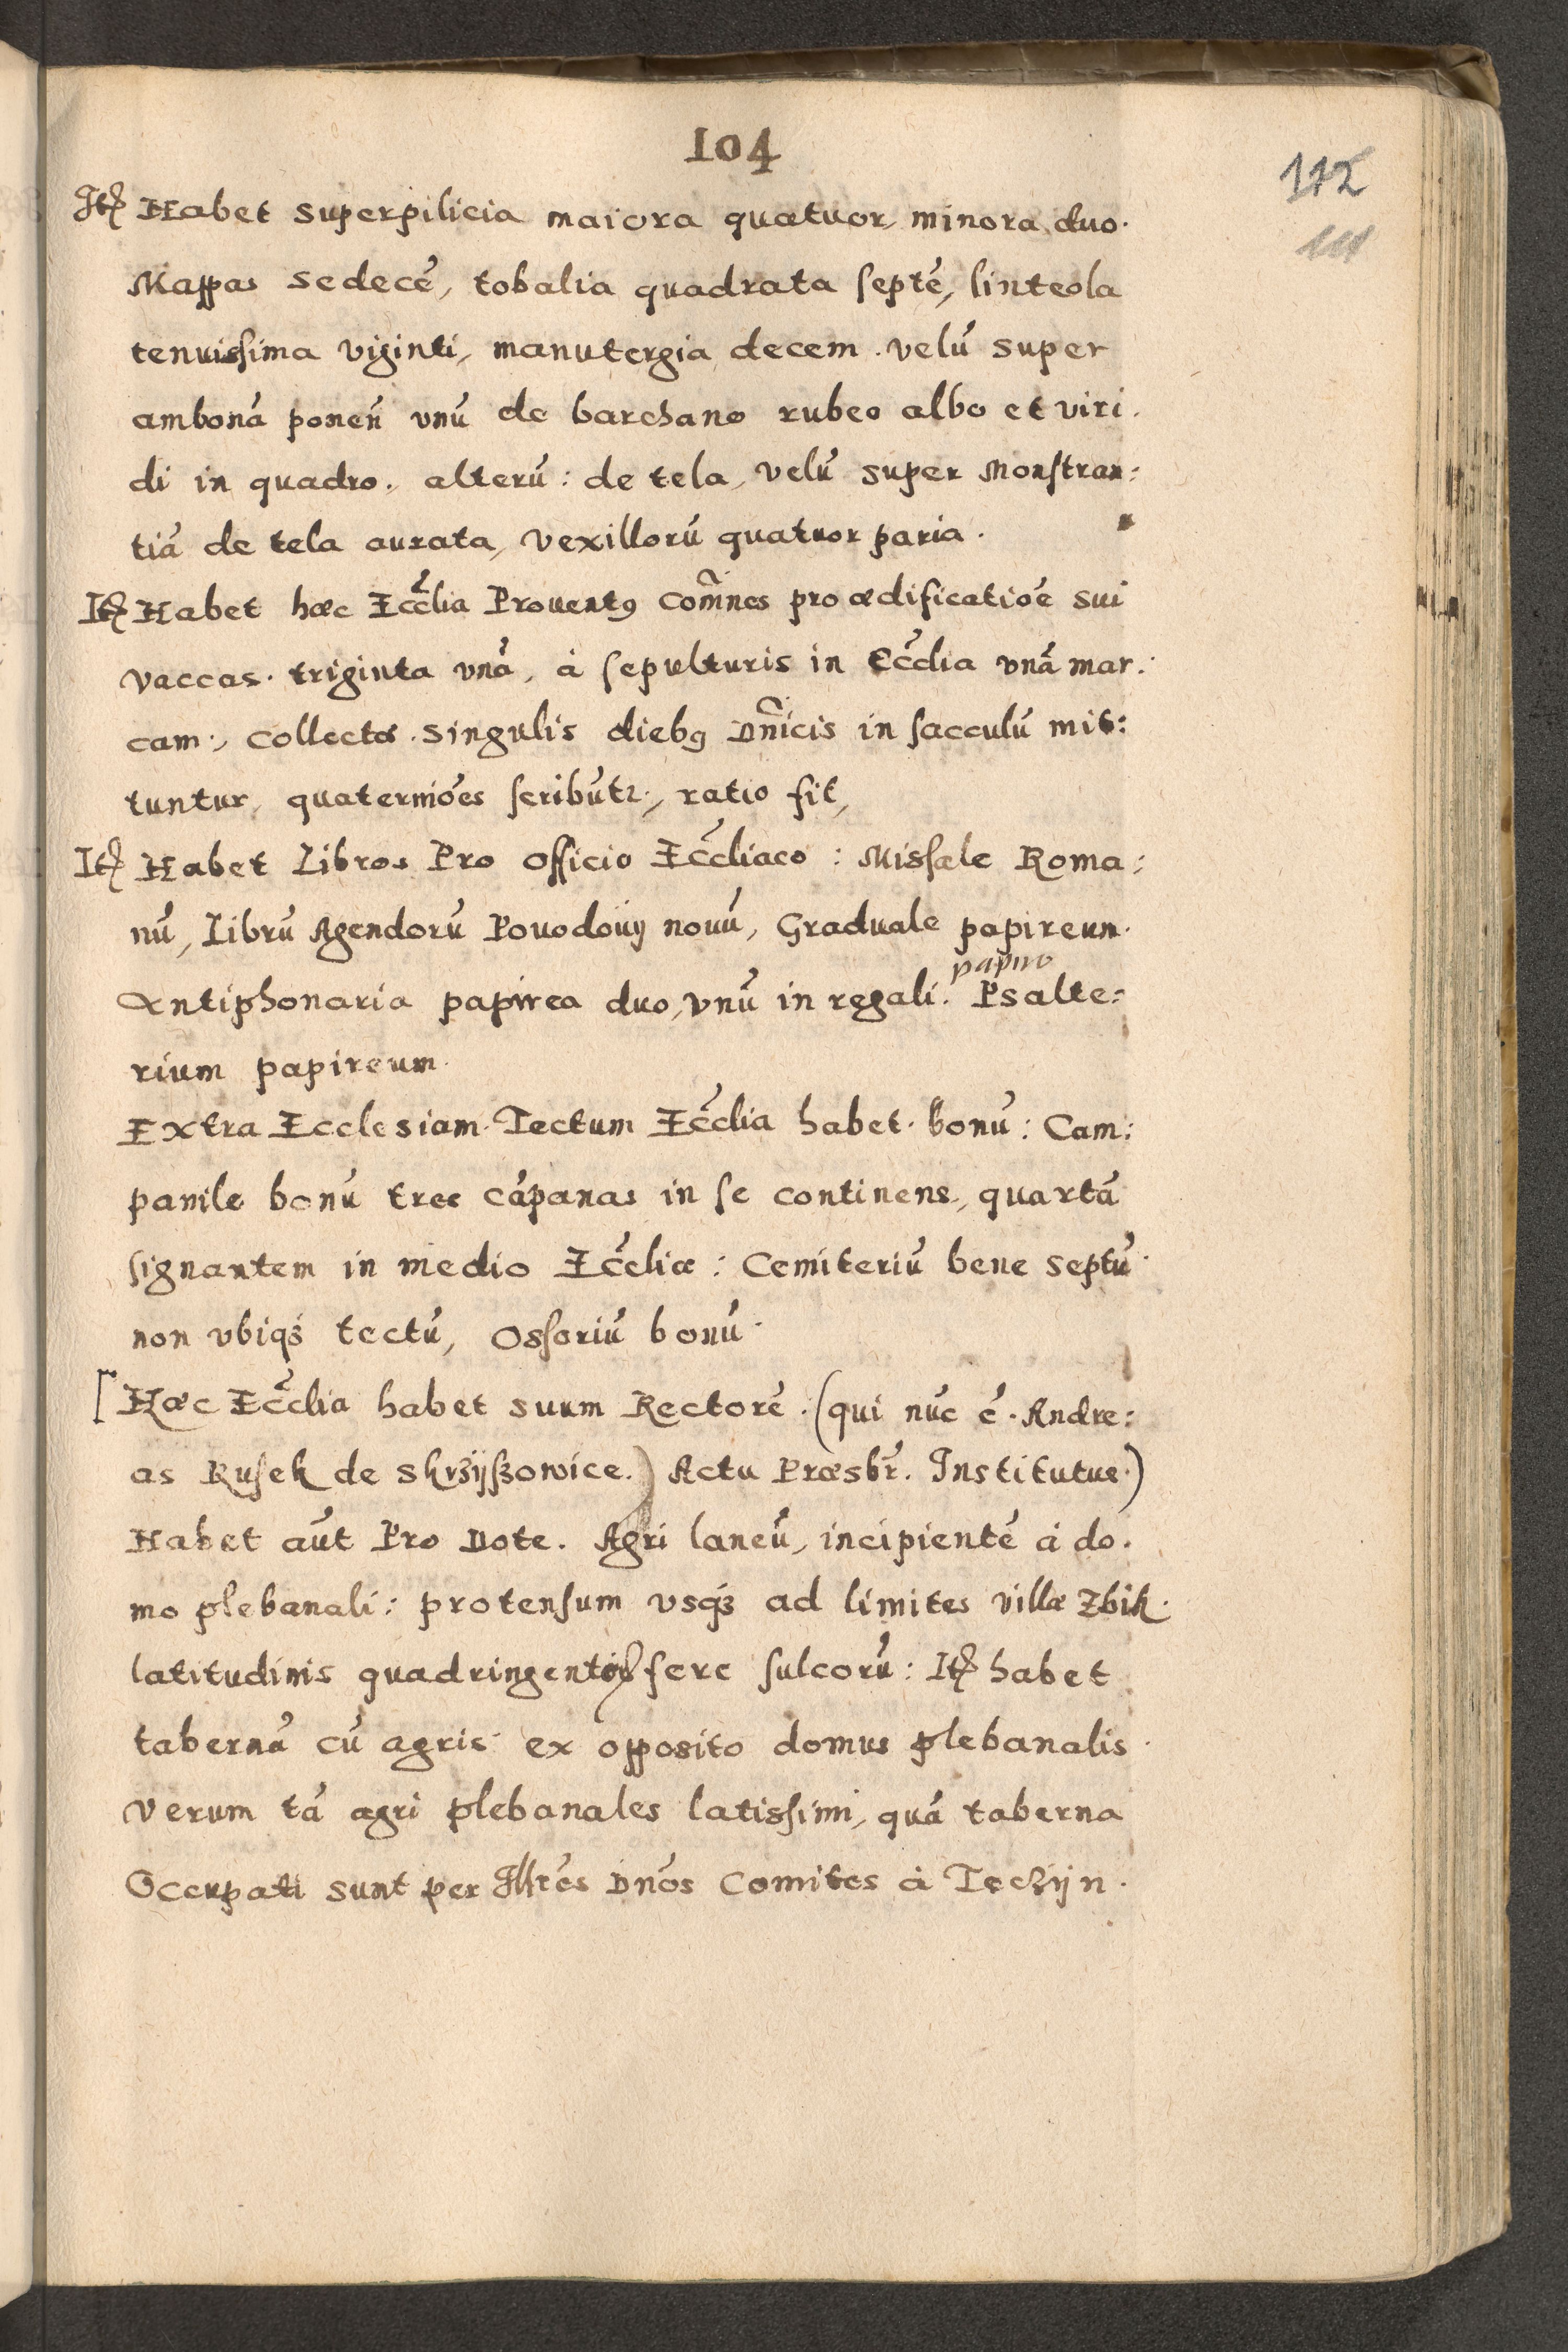 104
112
111
Itꝫ Habet superpilicia maiora quatuor, minora duo.
Mappas sedecē, tobalia quadrata ſeptē, linteola
tenuiſsima viginti, manutergia decem. velū super
ambonā ponen̄ vnū de barchano rubeo albo et viri.
di in quadro., alterū: de tela, velū super Monſtran:
tiā de tela aurata, vexillorū quatuor paria.
Itꝫ Habet hæc Eccl̄ia Prouentꝯ Com̄nes pro ædificatiōe sui
vaccas. triginta vnā, à ſepulturis in Eccl̄ia vnā mar.
cam., Collectæ. Singulis diebꝯ Dn̄icis in ſacculū mit:
tuntur, quaterniōes ſcribūtꝛ., ratio fit,
Itꝫ Habet Libros Pro Officio Eccl̄iaco: Miſsale Roma:
nū, Librū Agendorū Pouodouij nouū, Graduale papireum.
papiro
Antiphonaria papirea duo, vnū in regali. Psalte:
rium papireum.
Extra Ecclesiam. Tectum Eccl̄ia habet. bonū: Cam:
panile bonū tres cāpanas in ſe continens, quartā
ſignantem in medio Eccl̄iæ: Cemiteriū bene septū.
non vbiqꝫ tectū, Oſsariū bonū.
[Hæc Eccl̄ia habet suum Rectorē. (qui nūc ē. Andre:
as Ruſek de Skrzÿſzowice.) Actu Præsbr̄. Institutus.)
Habet aūt Pro Dote. Agri laneū, incipientē à do.
mo plebanali: protenſum vsqꝫ ad limites villæ Zbik.
latitudinis quadringentoꝝ fere ſulcorū: Itꝫ habet
tabernā cū agris. ex opposito domus plebanalis.
Verum tā agri plebanales latiſsimi, quā taberna
Occupati sunt per Illr̄es Dn̄os Comites à Teczÿn.